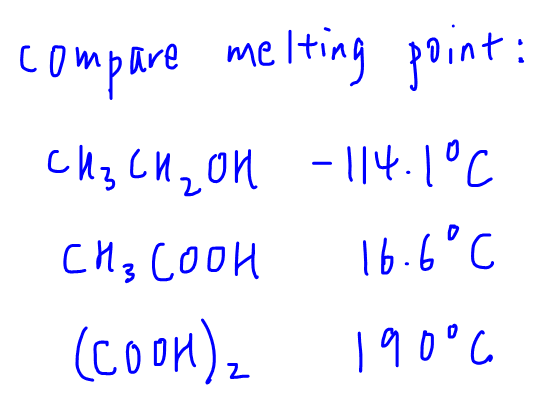 compare melting point:
CH₃CH₂OH -114.1°C
CH₃COOH 16.6°C
(COOH)₂ 190°C